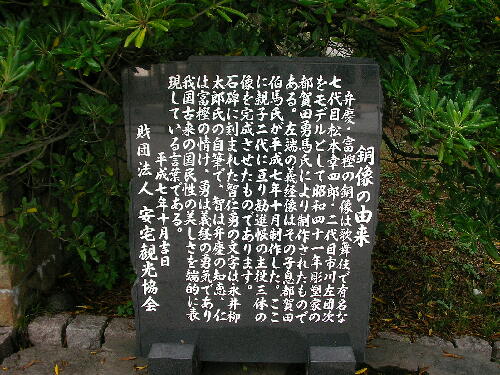 銅像の由来
弁慶・富樫の銅像は歌舞伎で有名な
七代目松本幸四郎・二代目市川左団次
をモデルとして昭和四十一年彫塑家の
都賀田勇馬氏により制作されたもので
ある。左端の義経像はその子息都賀田
伯馬氏が平成七年十月制作した。ここ
に親子二代に亘り勧進帳の主役三体の
像を完成させたものであります。
石碑に刻まれた智仁勇の文字は永井柳
太郎氏の自筆で、智は弁慶の知恵、仁
は富樫の情け、勇は義経の勇気であり
我国古来の国民性の美しさを端的に表
現している言葉である。
平成七年十月吉日
財団法人 安宅観光協会